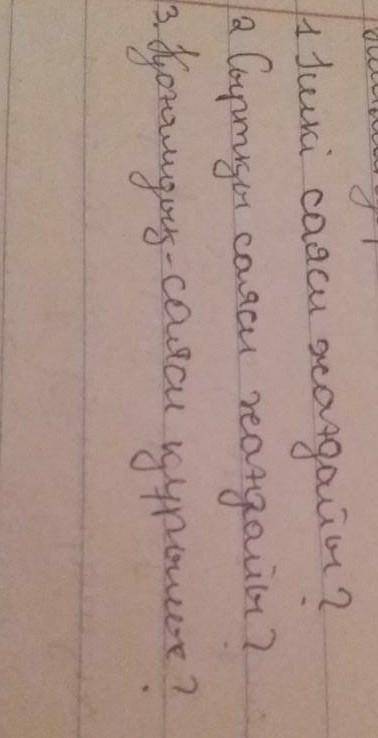 1. Ішкі саяси жағдайы?
2 Сыртқы саяси жағдайы?
3. Қоғамдық-саяси құрылысы?